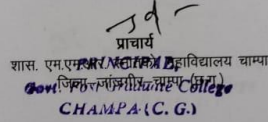 प्राचार्य
शास. एम.एम.आर. महाविद्यालय चाम्पा
PRINCIPAL
जिला-जांजगीर-चाम्पा (छ.ग.)
Govt. Post Graduate College
CHAMPA (C. G.)